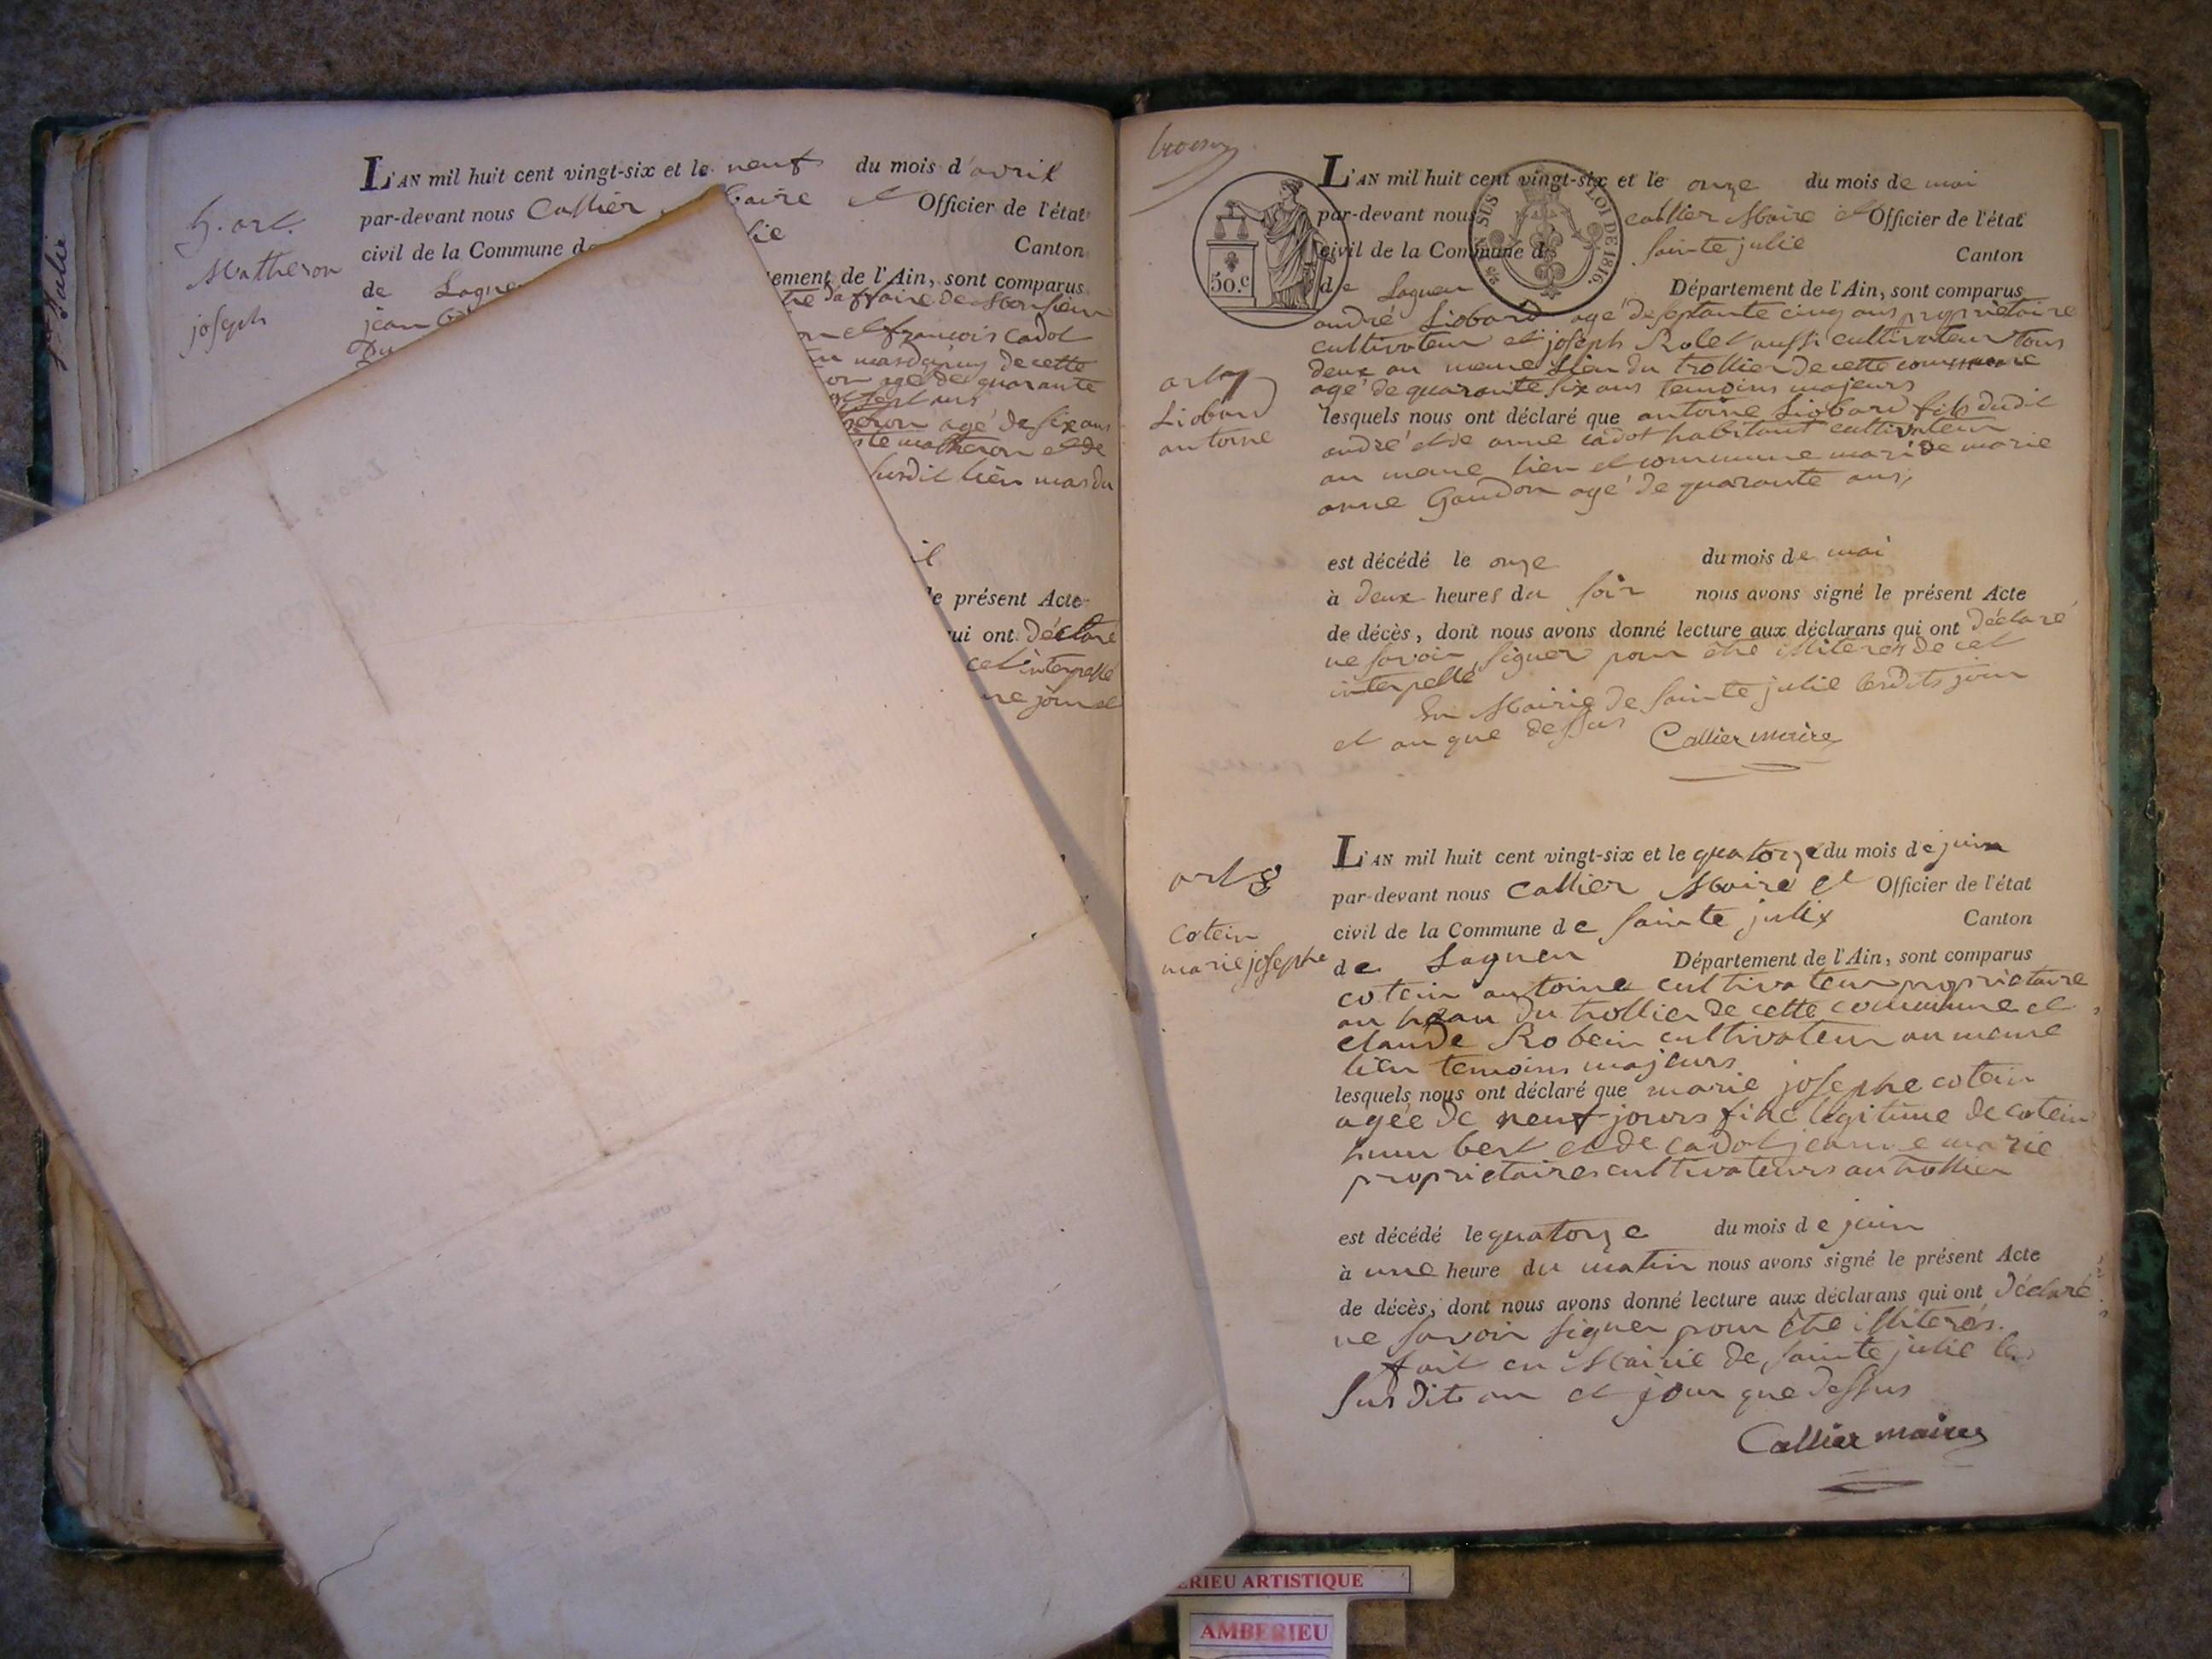 Ste Julie
L'AN mil huit cent vingt-six et le neuf du mois d'avril
par-devant nous Callier Maire et Officier de l'état
civil de la Commune de
lie
Canton
de Lagne
tement de l'Ain, sont comparus
jean
Du
h. art.
Matheron
joseph
tre d'affaire de Monsieur
on et françois Cadot
de cette
on agé de quarante
sept ans
heron agé de six ans
ste matheron et de
susdit lieu mas du
il
le présent Acte
qui ont déclaré
cet interpellé
me jour et
50.c
SUS
LOI DE 1816.
L'AN mil huit cent vingt-six et le onze du mois de mai
par-devant nous callier Maire et Officier de l'état
civil de la Commune de sainte julie Canton
de Lagneu Département de l'Ain, sont comparus
andré Liobard agé de septante cinq ans propriétaire
cultivateur et joseph Rolet aussi cultivateur tous
deux au meme lieu du trollier de cette commune
agé de quarante six ans temoins majeurs
art 7
Liobard
antoine
lesquels nous ont déclaré que antoine Liobard fils dudit
andré et de anne cadot habitant cultivateur
au meme lieu et commune mari de marie
anne Gaudon agé de quarante ans,
est décédé le onze du mois de mai
à deux heures du soir nous avons signé le présent Acte
de décès, dont nous avons donné lecture aux déclarans qui ont déclaré
ne savoir signer pour être illiterés de cet
interpellé
En Mairie de sainte julie lesdits jour
et an que dessus Callier maire
art 8
Cotein
marie josephe
L'AN mil huit cent vingt-six et le quatorze du mois de juin
par-devant nous Callier Maire et Officier de l'état
civil de la Commune de sainte julie Canton
de Lagneu Département de l'Ain, sont comparus
cotein antoine cultivateur proprietaire
au heau du trollier de cette commune et
claude Robein cultivateur au meme
lieu temoins majeurs
lesquels nous ont déclaré que marie josephe cotein
agée de neuf jours fille legitime de cotein
humbert et de cadot jeanne marie
proprietaires cultivateurs au trollier
est décédé le quatorze du mois de juin
à une heure du matin nous avons signé le présent Acte
de décès, dont nous avons donné lecture aux déclarans qui ont déclaré
ne savoir signer pour être illiterés.
fait en Mairie de sainte julie les
susdits an et jour que dessus
Callier maire
ERIEU ARTISTIQUE
AMBERIEU